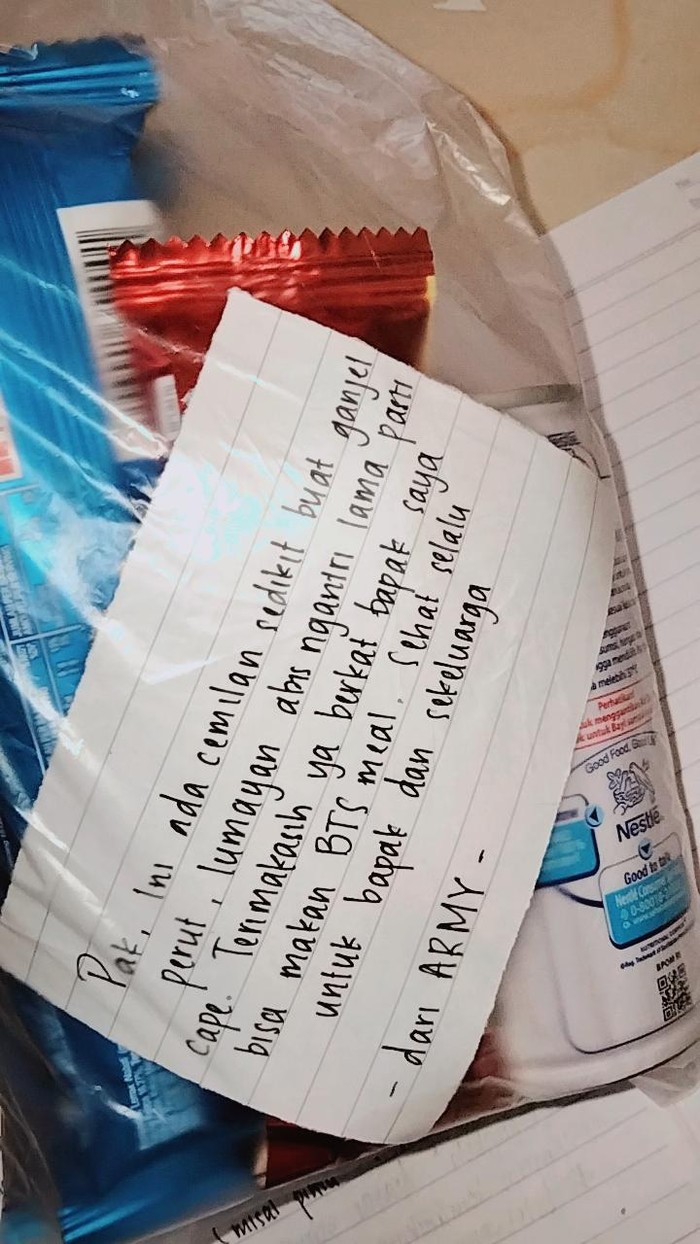 Pak, ini ada cemilan sedikit buat ganjel
perut, lumayan abis ngantri lama pasti
cape. Terimakasih ya berkat bapak saya
bisa makan BTS meal. Sehat selalu
untuk bapak dan sekeluarga
- dari ARMY -
Perhatikan!
untuk Bayi
Good Food, Good
Nestlé
Good to talk
BPOM RI
(misal